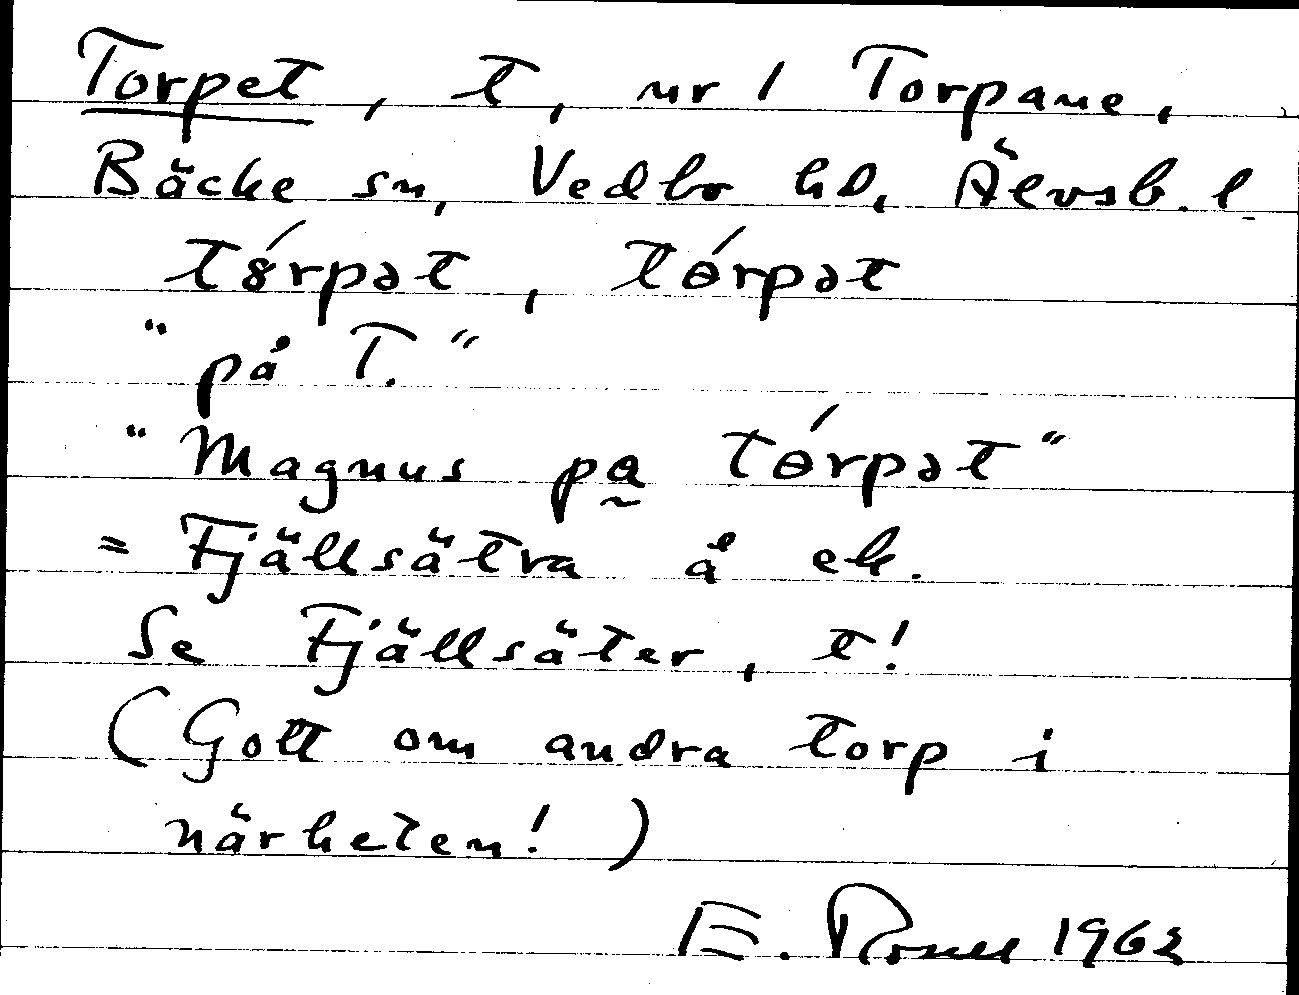 Torpet, t, nr 1 Torpane,
Bäcke sn, Vedbo hd, Älvsb. l.
tȣ́rpət, tɵ́rpət
"på T."
"Magnus pa̰ tɵ́rpət"
= Fjällsätra å ek.
Se Fjällsäter, t!
(Gott om andra torp i
närheten!)
E. 1962